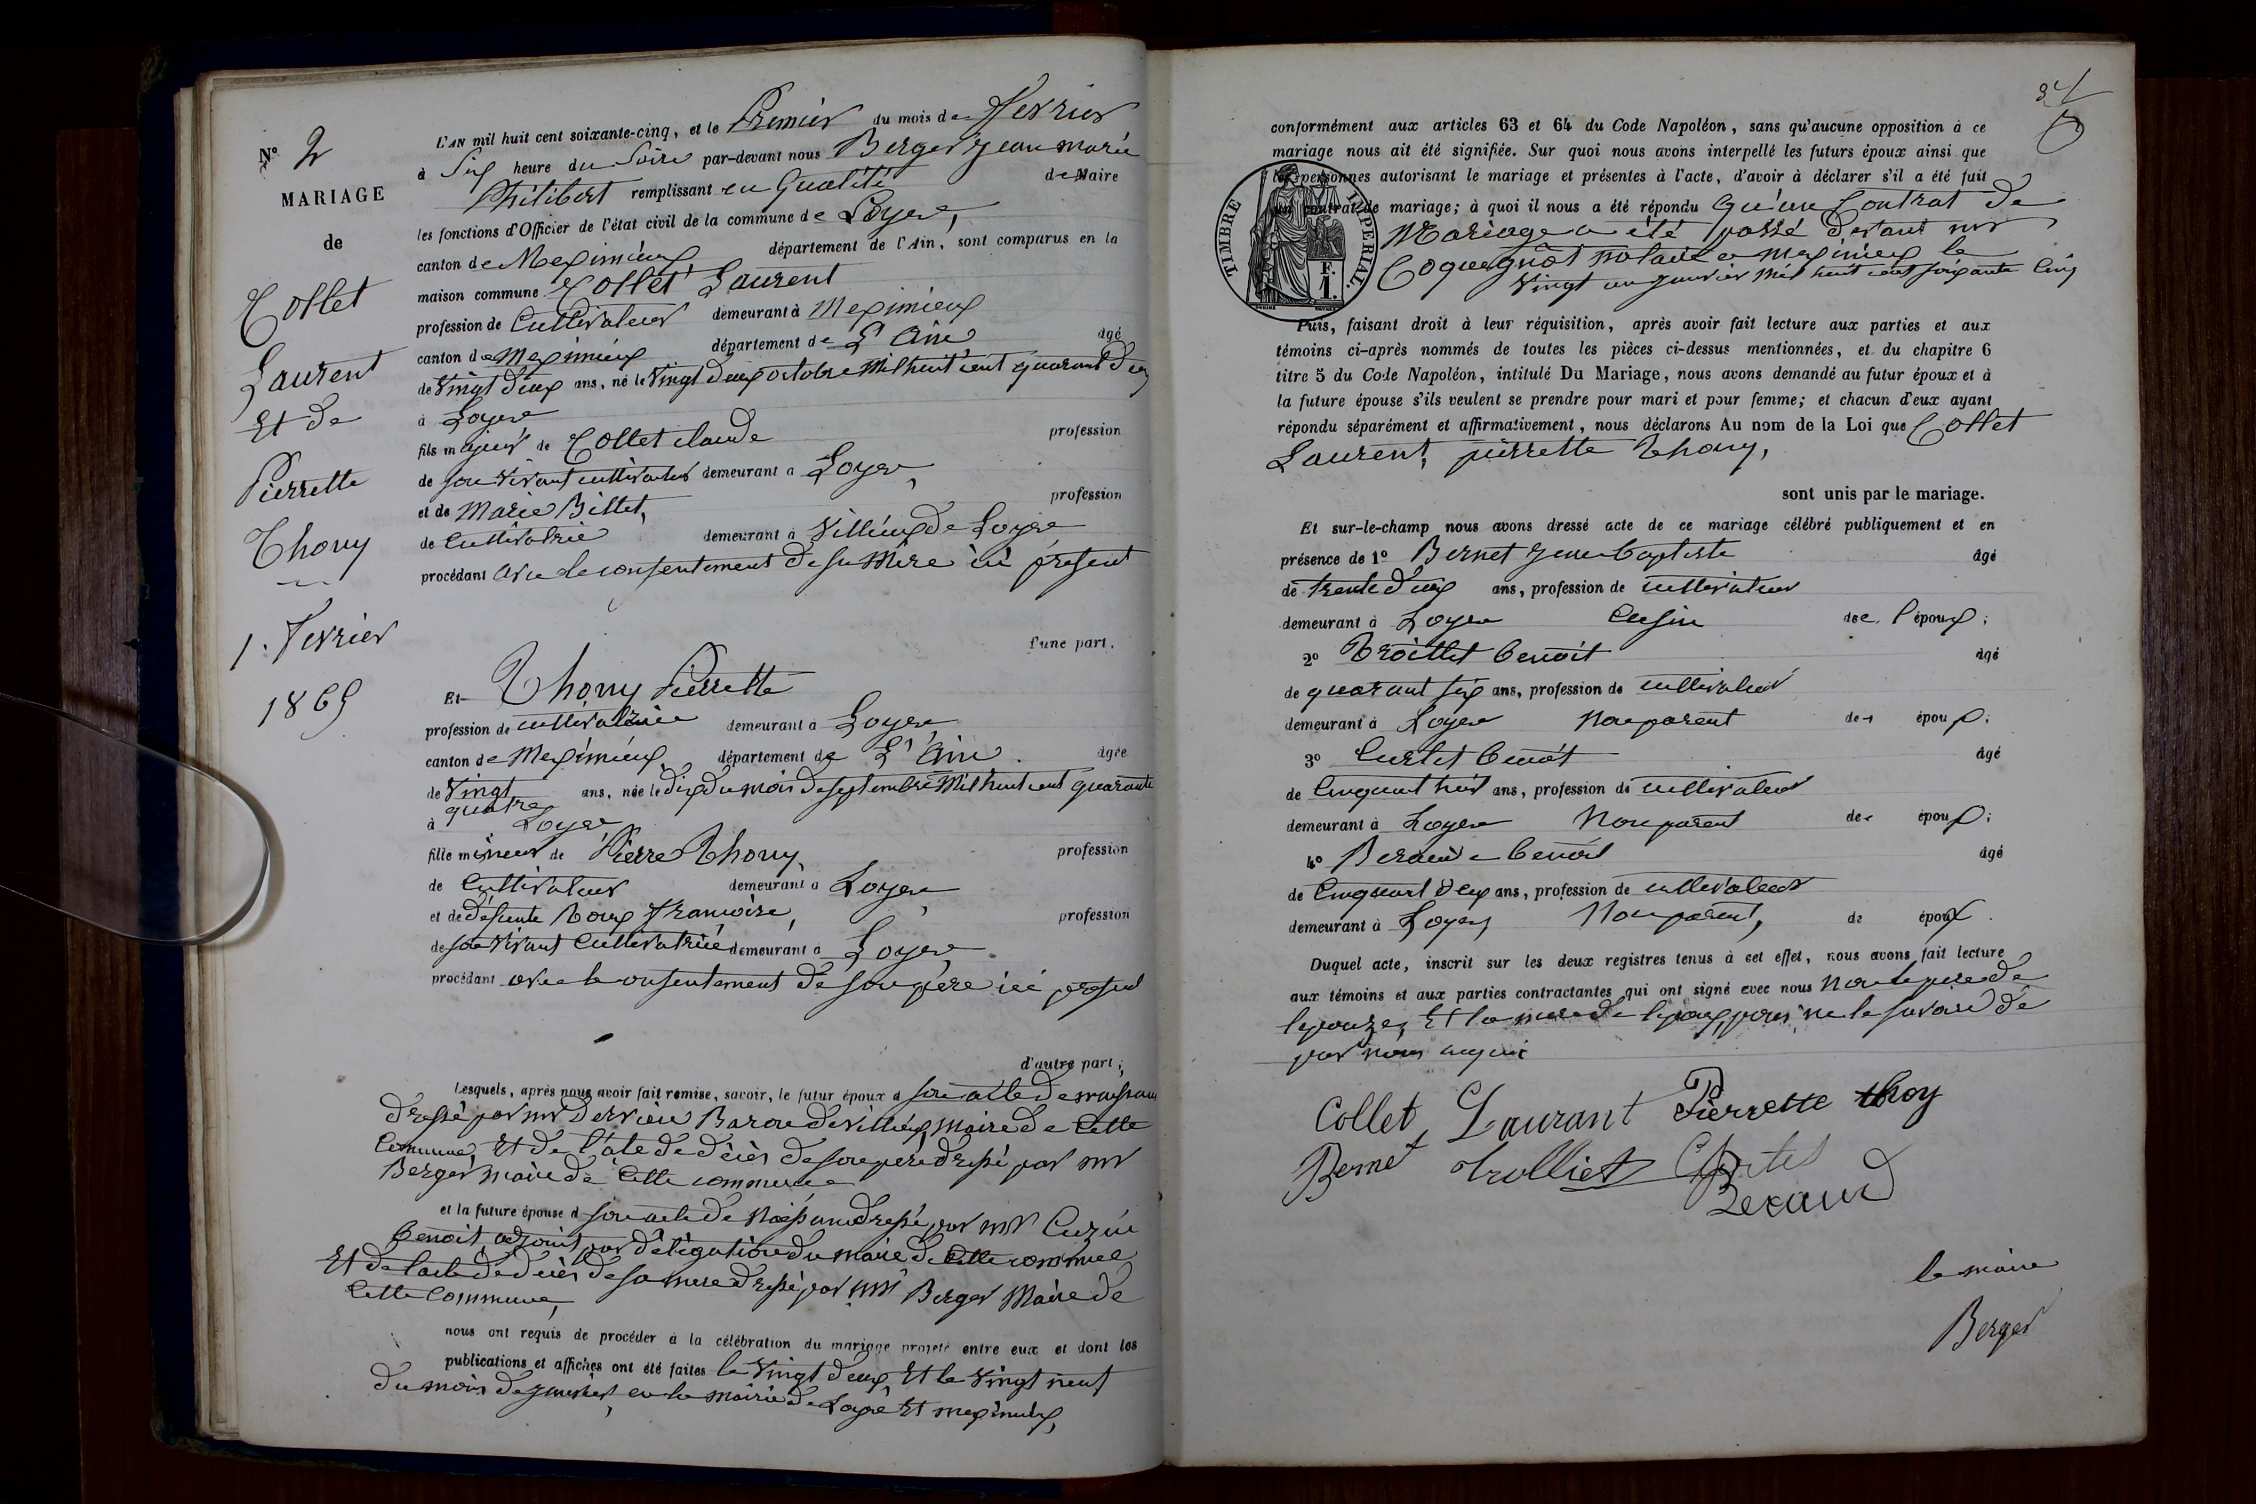 N° 2
MARIAGE
de
Collet
Laurent
Et de
Pierrette
Thony
1. Fevrier
1865
L'AN mil huit cent soixante-cinq, et le Premier du mois de Fevrier
à Six heure du Soire par-devant nous Berger jean marie
Philibert remplissant en Qualité de Maire
les fonctions d'Officier de l'état civil de la commune de Loyes,
canton de Meximieux département de l'Ain, sont comparus en la
maison commune Collet Laurent
profession de Cultivateur demeurant à Meximieux
canton de Meximieux département de L'Ain âgé
de Vingt deux ans, né le Vingt deux octobre Mil huit cent quarant deux
à Loyes
fils majeur de Collet claude profession
de son vivant cultivateur demeurant à Loyes,
et de Marie Billet, profession
de Cultivatrie demeurant à Villieux de Loyes
procédant avec le consentement de sa Mère ici présent
d'une part.
Et Thony Pierrette
profession de cultivatrice demeurant à Loyes
canton de Meximieux département de L'Ain âgée
de Vingt quatre ans, née le dix du mois de septembre Mil huit cent quarante
à Loyes
fille mineur de Pierre Thony, profession
de Cultivateur demeurant à Loyes,
et de défunte Roux Francoise, profession
de son vivant Cultivatrice demeurant à Loyes
procédant avec le consentement de son père ici present
d'autre part;
Lesquels, après nous avoir fait remise, savoir, le futur époux d son acte de naissance
dressé par mr Baron de Villieux, Maire de Cette
Commune, Et de l'acte de décès de son père dressé par mr
Berger maire de Cette commune
et la future épouse d son acte de Naissance dressé par mr Cuzin
Benoit, adjoint par délégation du maire de Cette commune
Et de l'acte de décès de sa mere dressé par mr Berger Maire de
Cette Commune,
nous ont requis de procéder à la célébration du mariage projeté entre eux et dont les
publications et affiches ont été faites le Vingt deux Et le Vingt neuf
du mois de janvier, en la mairie de Loyes Et meximieux,
conformément aux articles 63 et 64 du Code Napoléon, sans qu'aucune opposition à ce
mariage nous ait été signifiée. Sur quoi nous avons interpellé les futurs époux ainsi que
les personnes autorisant le mariage et présentes à l'acte, d'avoir à déclarer s'il a été fait
un contrat de mariage; à quoi il nous a été répondu qu'un Contrat de
Mariage a été passé devant mr
Coquegniot notaire a meximieux le
Vingt un janvier mil huit cent soixante Cinq
TIMBRE IMPERIAL.
F.
1.
Puis, faisant droit à leur réquisition, après avoir fait lecture aux parties et aux
témoins ci-après nommés de toutes les pièces ci-dessus mentionnées, et du chapitre 6
titre 5 du Code Napoléon, intitulé Du Mariage, nous avons demandé au futur époux et à
la future épouse s'ils veulent se prendre pour mari et pour femme; et chacun d'eux ayant
répondu séparément et affirmativement, nous déclarons Au nom de la Loi que Collet
Laurent, pierrette Thony,
sont unis par le mariage.
Et sur-le-champ nous avons dressé acte de ce mariage célébré publiquement et en
présence de 1° Bernet jean baptiste âgé
de trente deux ans, profession de cultivateur
demeurant à Loyes Cusin de l'époux;
2° Trolliet benoit âgé
de quarant six ans, profession de cultivateur
demeurant à Loyes Non parent des époux;
3° Curtet benoit âgé
de Cinquant trois ans, profession de cultivateur
demeurant à Loyes Non parent des époux;
4° Beraud benoit âgé
de Cinquant deux ans, profession de cultivateur
demeurant à Loyes Non parent, de époux.
Duquel acte, inscrit sur les deux registres tenus à cet effet, nous avons fait lecture
aux témoins et aux parties contractantes qui ont signé avec nous Non le pere de
lepouze, Et la mere de lepoux, pour ne le savoire de
par nous requis
Collet Laurant Pierrette thoy
Bernet trolliet
Beraud
le maire
Berger